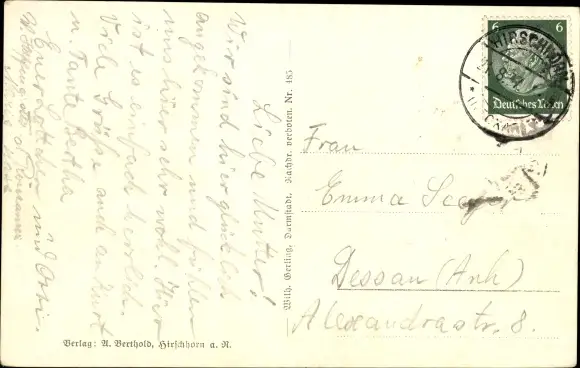 Liebe Mutter!
Wir sind hier glücklich
angekommen und fühlen
uns hier sehr wohl. Hier
ist es einfach herrlich.
Viele Grüße auch an Kurt
u Tante Bertha
Euer Lottchen und Otti.
Wilh. Gerling, Darmstadt. Nachdr. verboten. Nr. 485
6 6
HIRSCHHORN
(NECKAR)
Deutsches Reich
Frau
Emma
Dessau (Anh)
Alexandrastr. 8.
Verlag: A. Berthold, Hirschhorn a. N.